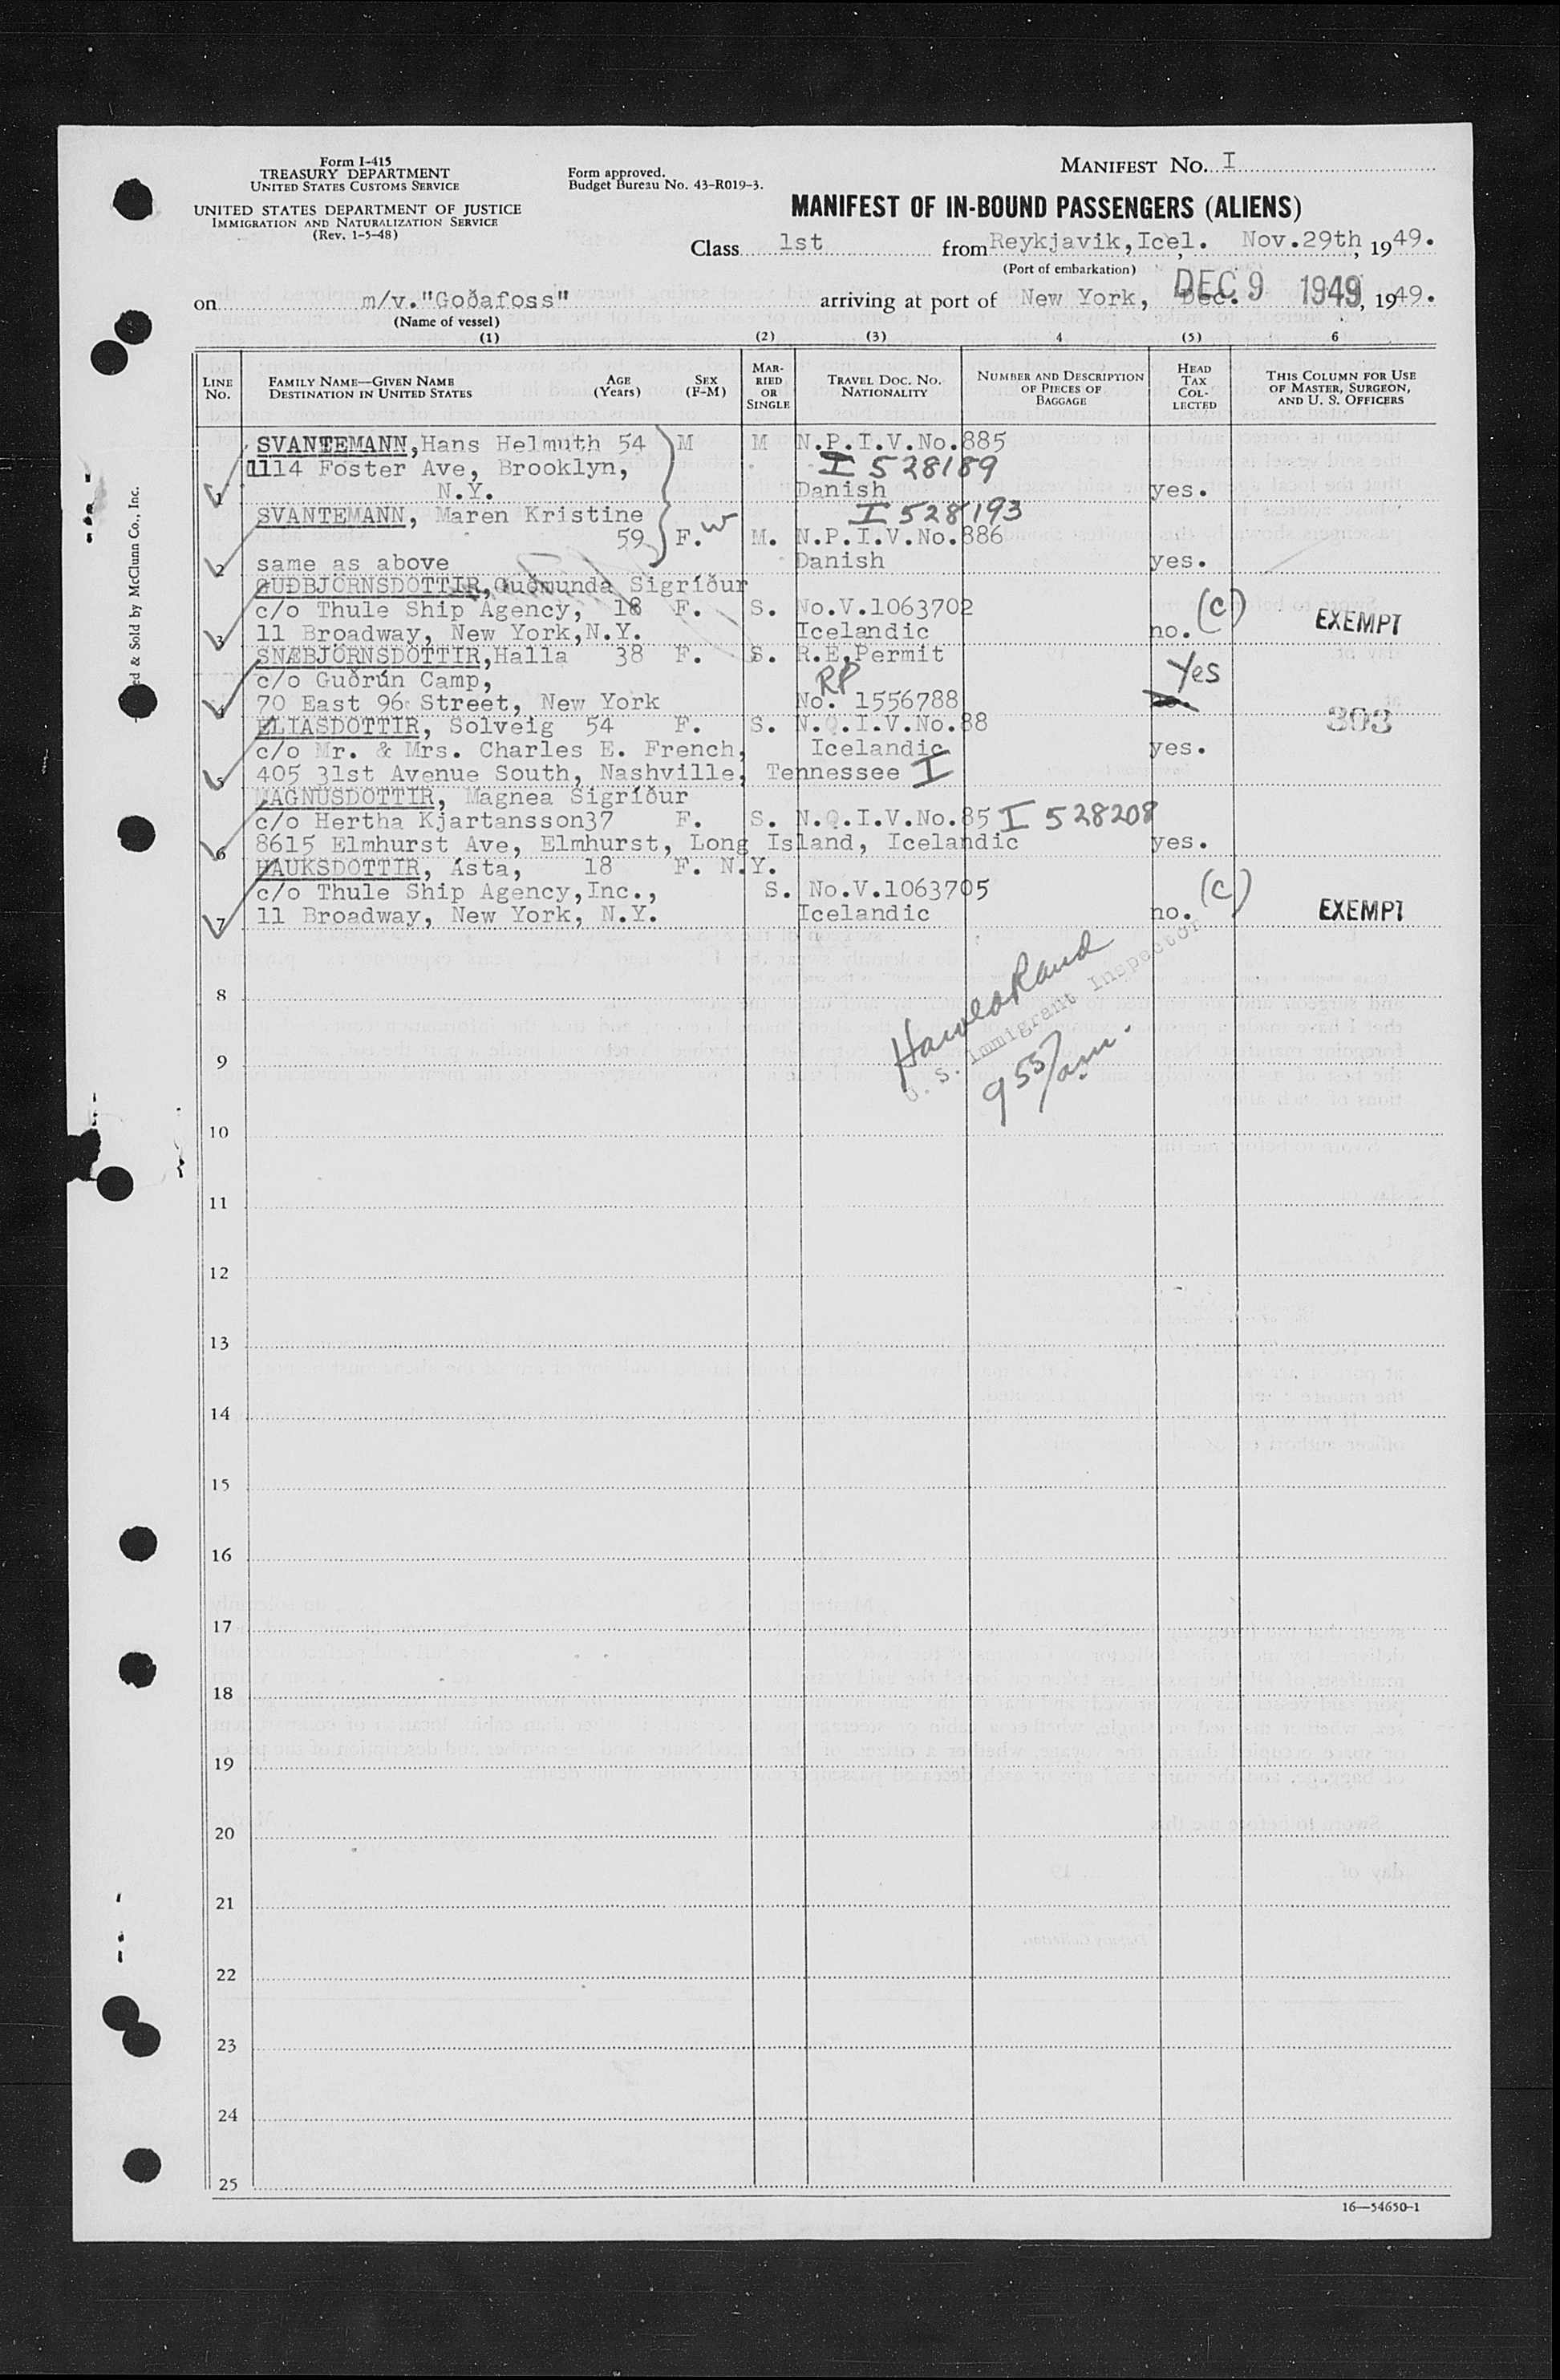 Form I-415
TREASURY DEPARTMENT
UNITED STATES CUSTOMS SERVICE
UNITED STATES DEPARTMENT OF JUSTICE
IMMIGRATION AND NATURALIZATION SERVICE
(Rev. 1-5-48)
Form approved.
Budget Bureau No. 43-R019-3.
MANIFEST No. I
MANIFEST OF IN-BOUND PASSENGERS (ALIENS)
Class 1st from Reykjavik, Icel. Nov. 29th, 1949.
(Port of embarkation)
on m/v. "Goðafoss" arriving at port of New York, Dec. DEC 9 1949, 1949.
(Name of vessel)
(1) (2) (3) 4 (5) 6
LINE No. FAMILY NAME—GIVEN NAME DESTINATION IN UNITED STATES AGE (Years) SEX (F-M) MARRIED OR SINGLE TRAVEL DOC. NO. NATIONALITY NUMBER AND DESCRIPTION OF PIECES OF BAGGAGE HEAD TAX COLLECTED THIS COLUMN FOR USE OF MASTER, SURGEON, AND U. S. OFFICERS
SVANTEMANN, Hans Helmuth 54 M M N.P.I.V.No.885
1114 Foster Ave, Brooklyn, I 528189
1 N.Y. Danish yes.
SVANTEMANN, Maren Kristine I 528193
59 F. W M. N.P.I.V.No.886
2 same as above Danish yes.
GUÐBJÖRNSDOTTIR, Guðmunda Sigríður
c/o Thule Ship Agency, 18 F. S. No.V.1063702 (C) EXEMPT
3 11 Broadway, New York, N.Y. Icelandic no.
SNÆBJÖRNSDOTTIR, Halla 38 F. S. R.E.Permit
c/o Guðrún Camp, RP Yes
4 70 East 96 Street, New York No. 1556788
ELIASDOTTIR, Solveig 54 F. S. N.Q.I.V.No.88 303
c/o Mr. & Mrs. Charles E. French, Icelandic yes.
5 405 31st Avenue South, Nashville, Tennessee I
MAGNUSDOTTIR, Magnea Sigríður
c/o Hertha Kjartansson 37 F. S. N.Q.I.V.No.85 I 528208
6 8615 Elmhurst Ave, Elmhurst, Long Island, Icelandic yes.
HAUKSDOTTIR, Ásta, 18 F. N.Y.
c/o Thule Ship Agency, Inc., S. No.V.1063705 (C)
7 11 Broadway, New York, N.Y. Icelandic no. EXEMPT
U. S. Immigrant Inspector
9 55/am.
8
9
10
11
12
13
14
15
16
17
18
19
20
21
22
23
24
25
16—54650-1
ed & Sold by McClunn Co., Inc.